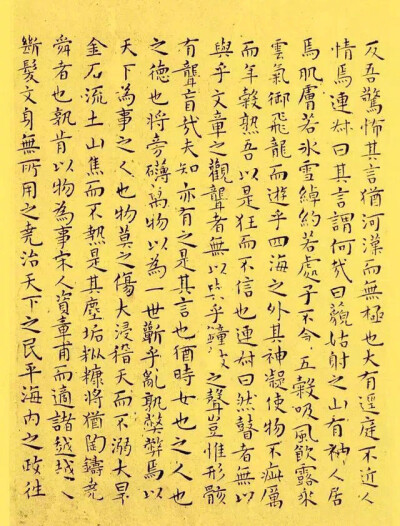 反吾驚怖其言猶河漢而無極也大有逕庭不近人
情焉連叔曰其言謂何哉曰藐姑射之山有神人居
焉肌膚若氷雪綽約若處子不食五穀吸風飲露乘
雲氣御飛龍而遊乎四海之外其神凝使物不疵厲
而年穀熟吾以是狂而不信也連叔曰然瞽者無以
與乎文章之觀聾者無以與乎鐘鼓之聲豈惟形骸
有聾盲哉夫知亦有之是其言也猶時女也之人也
之德也將旁礴萬物以為一世蘄乎亂孰弊弊焉以
天下為事之人也物莫之傷大浸稽天而不溺大旱
金石流土山焦而不熱是其塵垢粃糠將猶陶鑄堯
舜者也孰肯以物為事宋人資章甫而適諸越越人
斷髮文身無所用之堯治天下之民平海內之政往